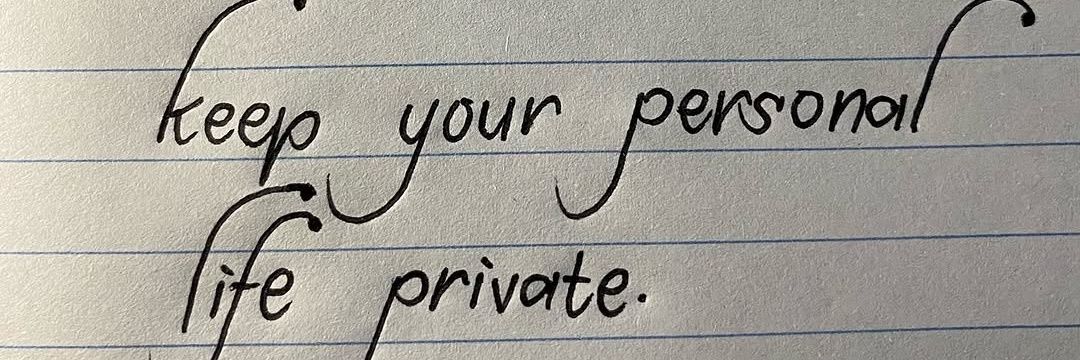 keep your personal
life private.